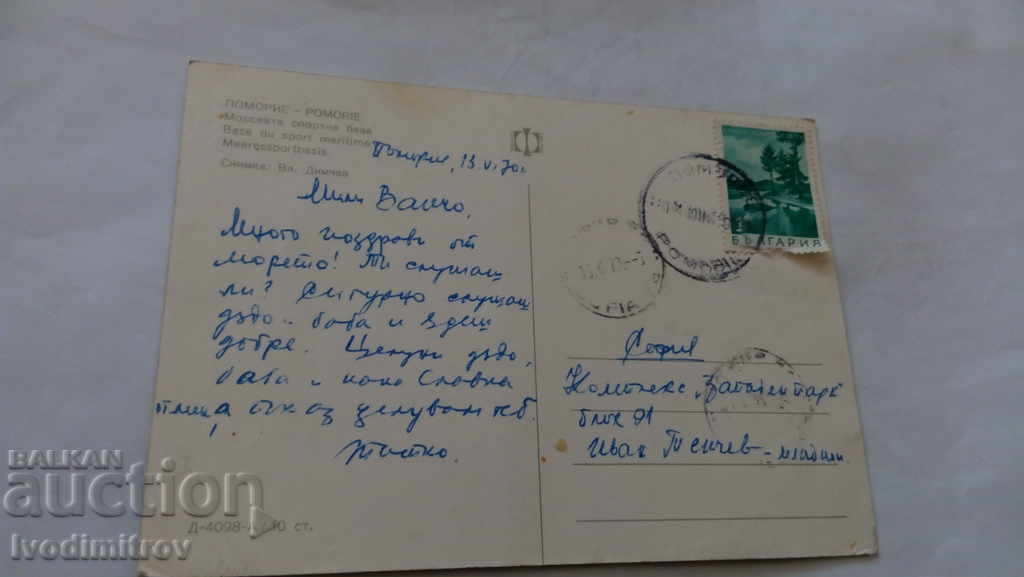 ПОМОРИЕ – POMORIE
Морската спортна база
Base du sport maritime
Meeressportbasis
Снимка: Вл. Димчев
Поморие, 13.VI.70г.
Мили Ванчо,
Много поздрави от
морето! Ти слушаш
ли? Сигурно слушаш
дядо и баба и ядеш
добре. Целуни дядо,
баба и кака Славка
а пък аз целувам теб.
Татко.
Д-4098-А / 10 ст.
БЪЛГАРИЯ
POMORIE
София
Комплекс „Западен парк“
блок 91
Иван Тенчев – младши
BALKAN
Auction
Ivodimitrov